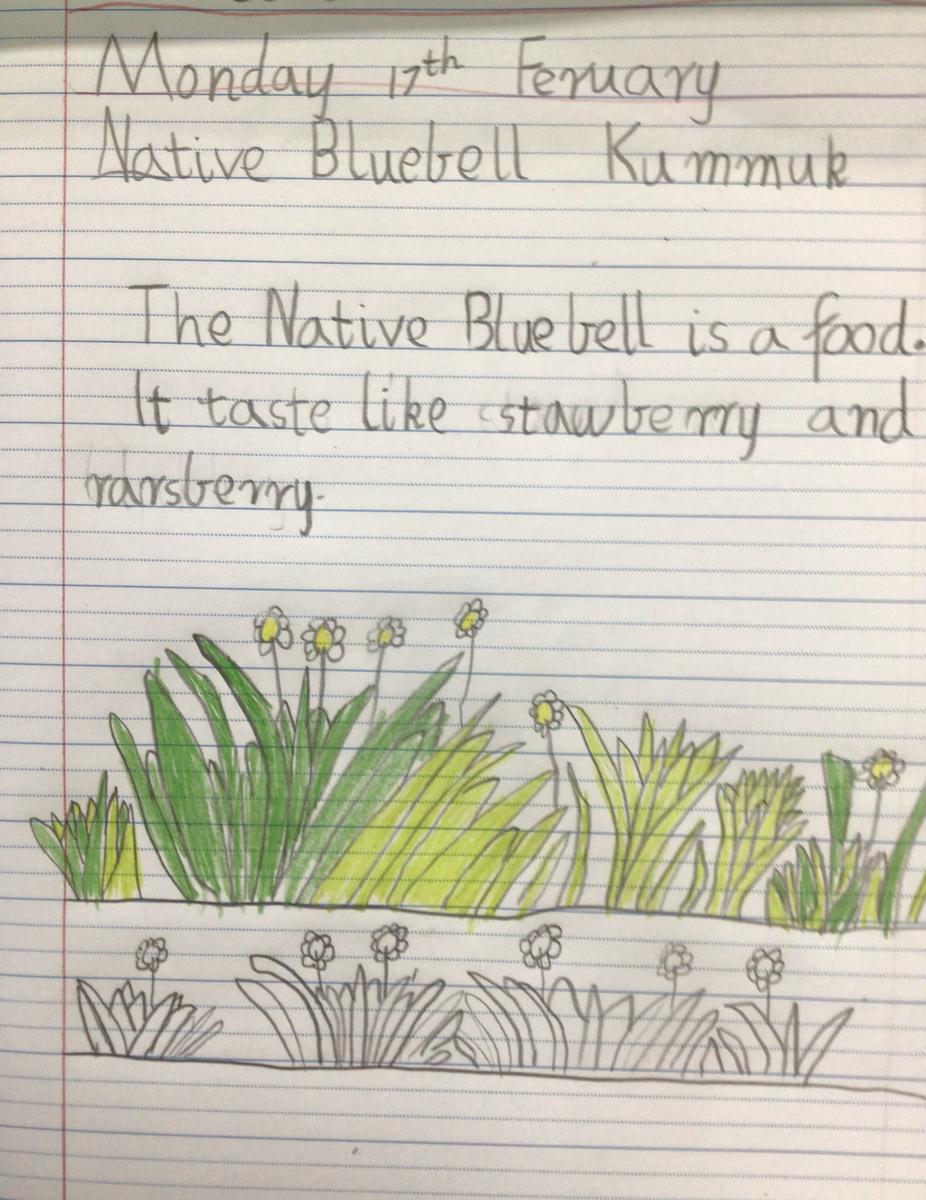 Monday 17th Feruary
Native Bluebell Kummuk
The Native Bluebell is a food.
It taste like stawberry and
rarsberry.